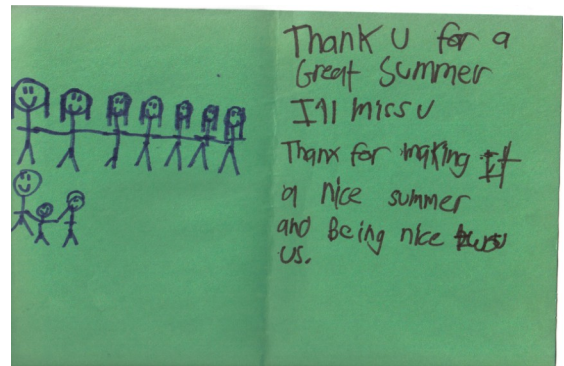 Thank U for a
Great Summer
I'll miss U
Thanx for making It
a nice summer
and Being nice
us.